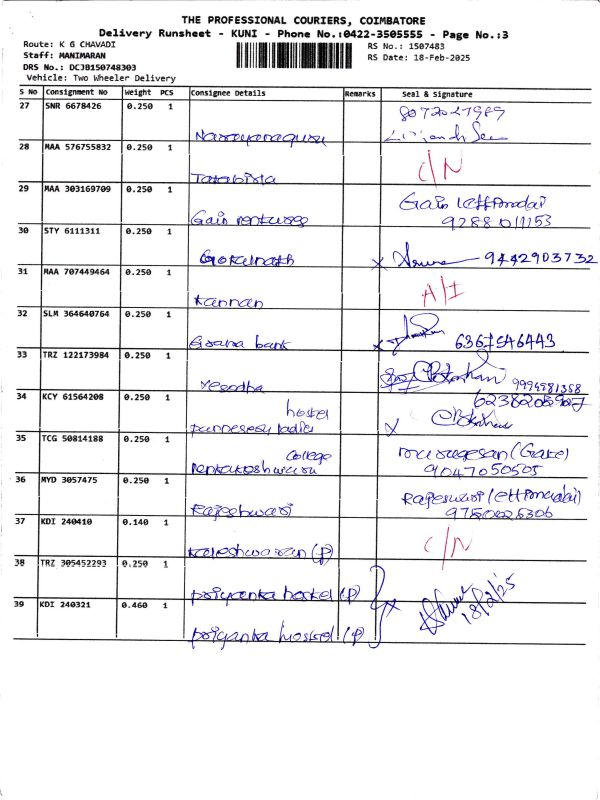 THE PROFESSIONAL COURIERS, COIMBATORE
Delivery Runsheet - KUNI - Phone No.:0422-3505555 - Page No.:3
Route: K G CHAVADI
RS No.: 1507483
Staff: MANIMARAN
RS Date: 18-Feb-2025
DRS No.: DCJB150748303
Vehicle: Two Wheeler Delivery
S No Consignment No Weight PCS Consignee Details Remarks Seal & Signature
27 SNR 6678426 0.250 1
Narayanaguru
28 MAA 576755832 0.250 1 C/N
Tatabista
29 MAA 303169709 0.250 1 Gain
Gain 9288011153
30 STY 6111311 0.250 1
Gokulnath x 9442903732
31 MAA 707449464 0.250 1 A/I
Kannan
32 SLM 364640764 0.250 1
bank x 6367546443
33 TRZ 122173984 0.250 1
Yesodha 9994981358
34 KCY 61564208 0.250 1
hostel
ladies x
35 TCG 50814188 0.250 1 murugesan (Gate)
College
Venkateshwara 9047050505
36 MYD 3057475 0.250 1 Rajeswari
Rajeshwari 9750025306
37 KDI 240410 0.140 1 C/N
Kaleshwaran (P)
38 TRZ 305452293 0.250 1
priyanka hostel (P) x
39 KDI 240321 0.460 1 18/2/25
priyanka hostel (P)